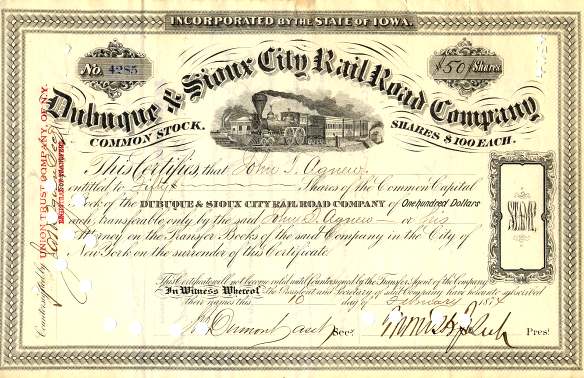 INCORPORATED BY THE STATE OF IOWA.
No. 4285
$50 Shares
Dubuque & Sioux City Rail Road Company
COMMON STOCK. SHARES $100 EACH.
This Certifies, that John T. Agnew
entitled to Fifty Shares of the Common Capital
Stock of the DUBUQUE & SIOUX CITY RAIL ROAD COMPANY of One Hundred Dollars
each, transferable only by the said John T. Agnew or his
Attorney on the Transfer Books of the said Company in the City of
New York on the surrender of this Certificate.
This Certificate will not become valid until countersigned by the Transfer Agent of the Company
In Witness Whereof The President and Secretary of said Company have hereunto subscribed
their names this 10 day of February 1874
Secy. Pres't
Countersigned by
UNION TRUST COMPANY, OF N.Y.
REGISTRAR OF TRANSFERS
STAMP.